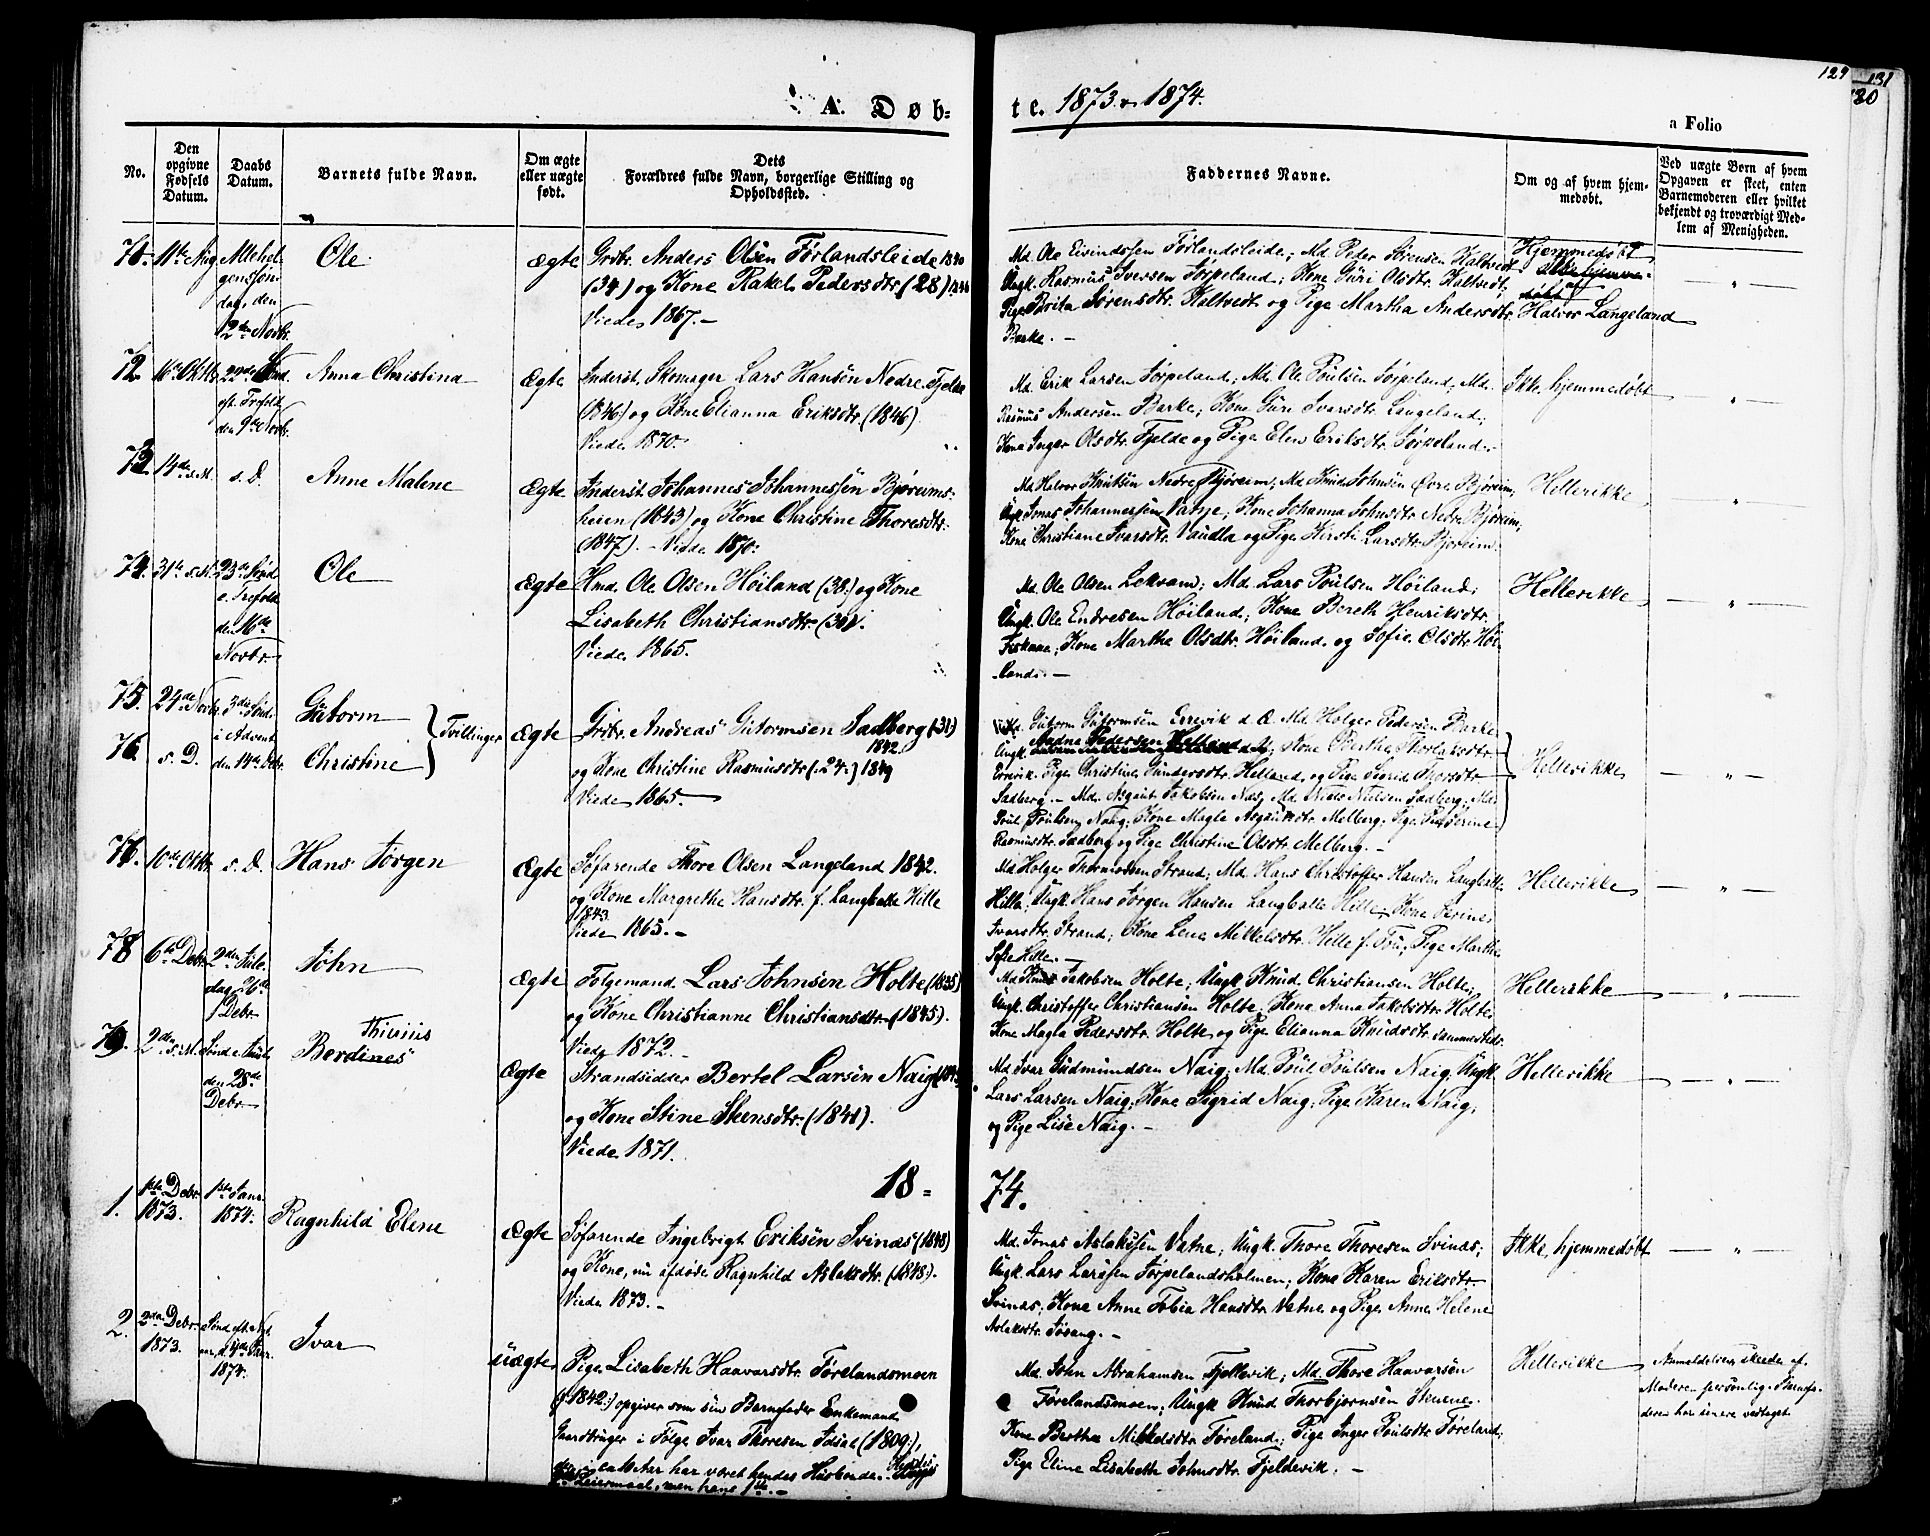 129 131
130
A. Døb=
te. 1873 & 1874.
a Folio
No.
Den
opgivne
Fødsels
Datum.
Daabs
Datum.
Barnets fulde Navn.
Om ægte
eller uægte
født.
Dets
Forældres fulde Navn, borgerlige Stilling og
Opholdssted.
Faddernes Navne.
Om og af hvem hjem-
medøbt.
Ved uægte Børn af hvem
Opgaven er skeet, enten
Barnemoderen eller hvilket
bekjendt og troværdigt Med-
lem af Menigheden.
71. 11te Aug.
Allehel-
genssøn-
dag, den
2den Novbr.
Ole
Ægte
Grdbr. Anders Olsen Førlandsleide 1840
(34) og Kone Rakel Pedersdtr. (28) 1846
Viede 1867.
Md. Ole Eivindssen Førlandsleide; Md Peder Sørensen Kaltvedt
Ungk. Rasmus Iversen Jørpeland; Kone Guri Olsdtr. Kaltvedt;
Pige Brita Sørensdtr. Kaltvedt og Pige Martha Andersdtr.
Barke.
Hjemmedøbt
af
Halvor Langeland
72. 16de Oktbr.
22de Sønd.
eft. Trefold.
den 9de Novbr.
Anna Christina
Ægte
Inderst, Skomager Lars Hansen Nedre Tjelta
(1846) og Kone Elianna Eriksdtr. (1846)
Viede 1870.
Md. Erik Larsen Jørpeland; Md. Ole Poulsen Jørpeland, Md.
Rasmus Andersen Barke; Kone Guri Ivarsdtr. Langeland;
Kone Inger Olsdtr. Fjelde og Pige Elen Eriksdtr. Jørpeland.
Ikke hjemmedøbt
73. 14de s. M.
s. D.
Anne Malene
Ægte
Inderst Johannes Johannessen Bjøreims-
heien (1843) og Kone Christine Thoresdtr.
(1847). - Viede 1870.
Md Halvor Knutsen Nedre Bjøreim; Md Knud Johnsen Øvre Bjøreim;
Ungk. Jonas Johannessen Vatne; Kone Johanna Johnsdtr. Nedre Bjøreim;
Kone Christiane Ivarsdtr. Vaudla og Pige Kirsti Larsdtr. Bjøreim.
Hellerikke
74. 31te s. M.
23de Sønd
e. Trefold
den 16de
Novbr.
Ole
Ægte
Hmd. Ole Olsen Høiland (38) og Kone
Lisabeth Christiansdtr.
Viede 1865.
Md. Ole Olsen Lekvam; Md. Lars Poulsen Høiland;
Ungk. Ole Endresen Høiland; Kone Bereth Henriksdtr.
Fiskaaen; Kone Martha Olsdtr. Høiland og Sofie Olsdtr. Høi-
land.
Hellerikke
75. 24de Novbr.
3die Sønd.
i Advent
den 14de Debr.
Gutorm
Tvillinger
76. s. D.
Christine
Ægte
Grdbr. Andreas Gutormsen Sadberg (31)
1842
og Kone Christine Rasmusdtr. (24) 1849
Viede 1865.
Gutorm Gutormsen Errevik d. Æ. Md. Holger Pedersen Barke
Ungk. Andne Pedersen Helland; Kone Berthe Thorlaksdtr.
Errevik. Pige Christine Gundersdtr. Helland, og Pige Sigrid Thorsdtr
Sadberg. - Md. Asgaut Jakobsen Næs; Md. Niels Nielsen Sadberg; Md.
Poul Poulsen Naig; Kone Magle Asgautsdtr. Melberg; Pige Severine
Rasmusdtr. Sadberg og Pige Christine Olsdtr. Melberg.
Hellerikke
77. 10de Oktbr.
s. D.
Hans Jørgen
Ægte
Søfarende Thore Olsen Langeland 1842.
og Kone Margrethe Hansdtr. f. Langballe Hille
1843.
Viede 1865.
Md Holger Thormodsen Strand; Md. Hans Christoffer Hansen Langballe
Hille; Ungk. Hans Jørgen Hansen Langballe Hille; Kone Serine
Ivarsdtr. Strand; Kone Lene Mikkelsdtr. Hille f. Tou; Pige Marthe
Sofie Hille.
Hellerikke
78. 6te Debr.
2den Jule-
dag, 26de
Debr.
John
Ægte
Følgemand Lars Johnsen Holte (1835)
og Kone Christianne Christiansdtr. (1845).
Viede 1872.
Md. Jakobsen Holte; Ungk. Knud Christiansen Holte;
Ungk. Christoffer Christiansen Holte; Kone Anna Jakobsdtr. Holte;
Kone Magla Pedersdtr. Holte og Pige Elianna Knudsdtr. sammesteds.
Hellerikke
79. 2den s. M.
Sønd e. Juul,
den 28de
Debr
Berdines
Ægte
Strandsidder Bertel Larsen Naig
og Kone Stine Stensdtr. (1841).
Viede 1871.
Md Ivar Gudmundsen Naig; Md. Poul Poulsen Naig; Ungk
Lars Larsen Naig; Kone Sigrid Naig; Pige Karen Naig;
og Pige Lise Naig.
Hellerikke
18 = 74.
1. 1ste Debr.
1873.
1ste Janr.
1874.
Ragnhild Elene
Ægte
Søfarende Ingebrigt Eriksen Svinæs (1848)
og Kone, nu afdøde Ragnhild Aslaksdtr. (1848).
Viede 1873.
Md. Jonas Aslaksen Vatne; Ungk. Thore Thoresen Svinæs;
Ungk. Lars Larssen Jørpelandsholmen; Kone Karen Eriksdtr.
Svinæs; Kone Anne Tobia Hansdtr. Vatne og Pige Anne Helene
Aslaksdtr. Jøsang.
Ikke hjemmedøbt
2. 2den Debr.
1873.
Sønd. eft. Nyt-
aar, d. 4de Janr.
1874.
Ivar
uægte
Pige Lisabeth Haavarsdtr. Førelandsmoen
(1842) opgiver som sin Barnefader Enkemand
Gaardbruger i Følge Ivar Thoresen Idsal (1809),
har været hendes Husbonde. Hendes
Leiermaal, men hans 1ste.
Md. John Abrahamsen Fjellevik; Md. Thore Haavarsen
Førelandsmoen; Ungk. Knud Thorbjørnsen Stenene.
Kone Bertha Mikkelsdtr. Føreland; Pige Inger Poulsdtr. Føreland;
Pige Eline Lisabeth Johnsdtr. Fjeldevik.
Hellerikke
Anmeldelsen skeede af
Moderen personlig. Barnefa-
deren har senere vedtaget